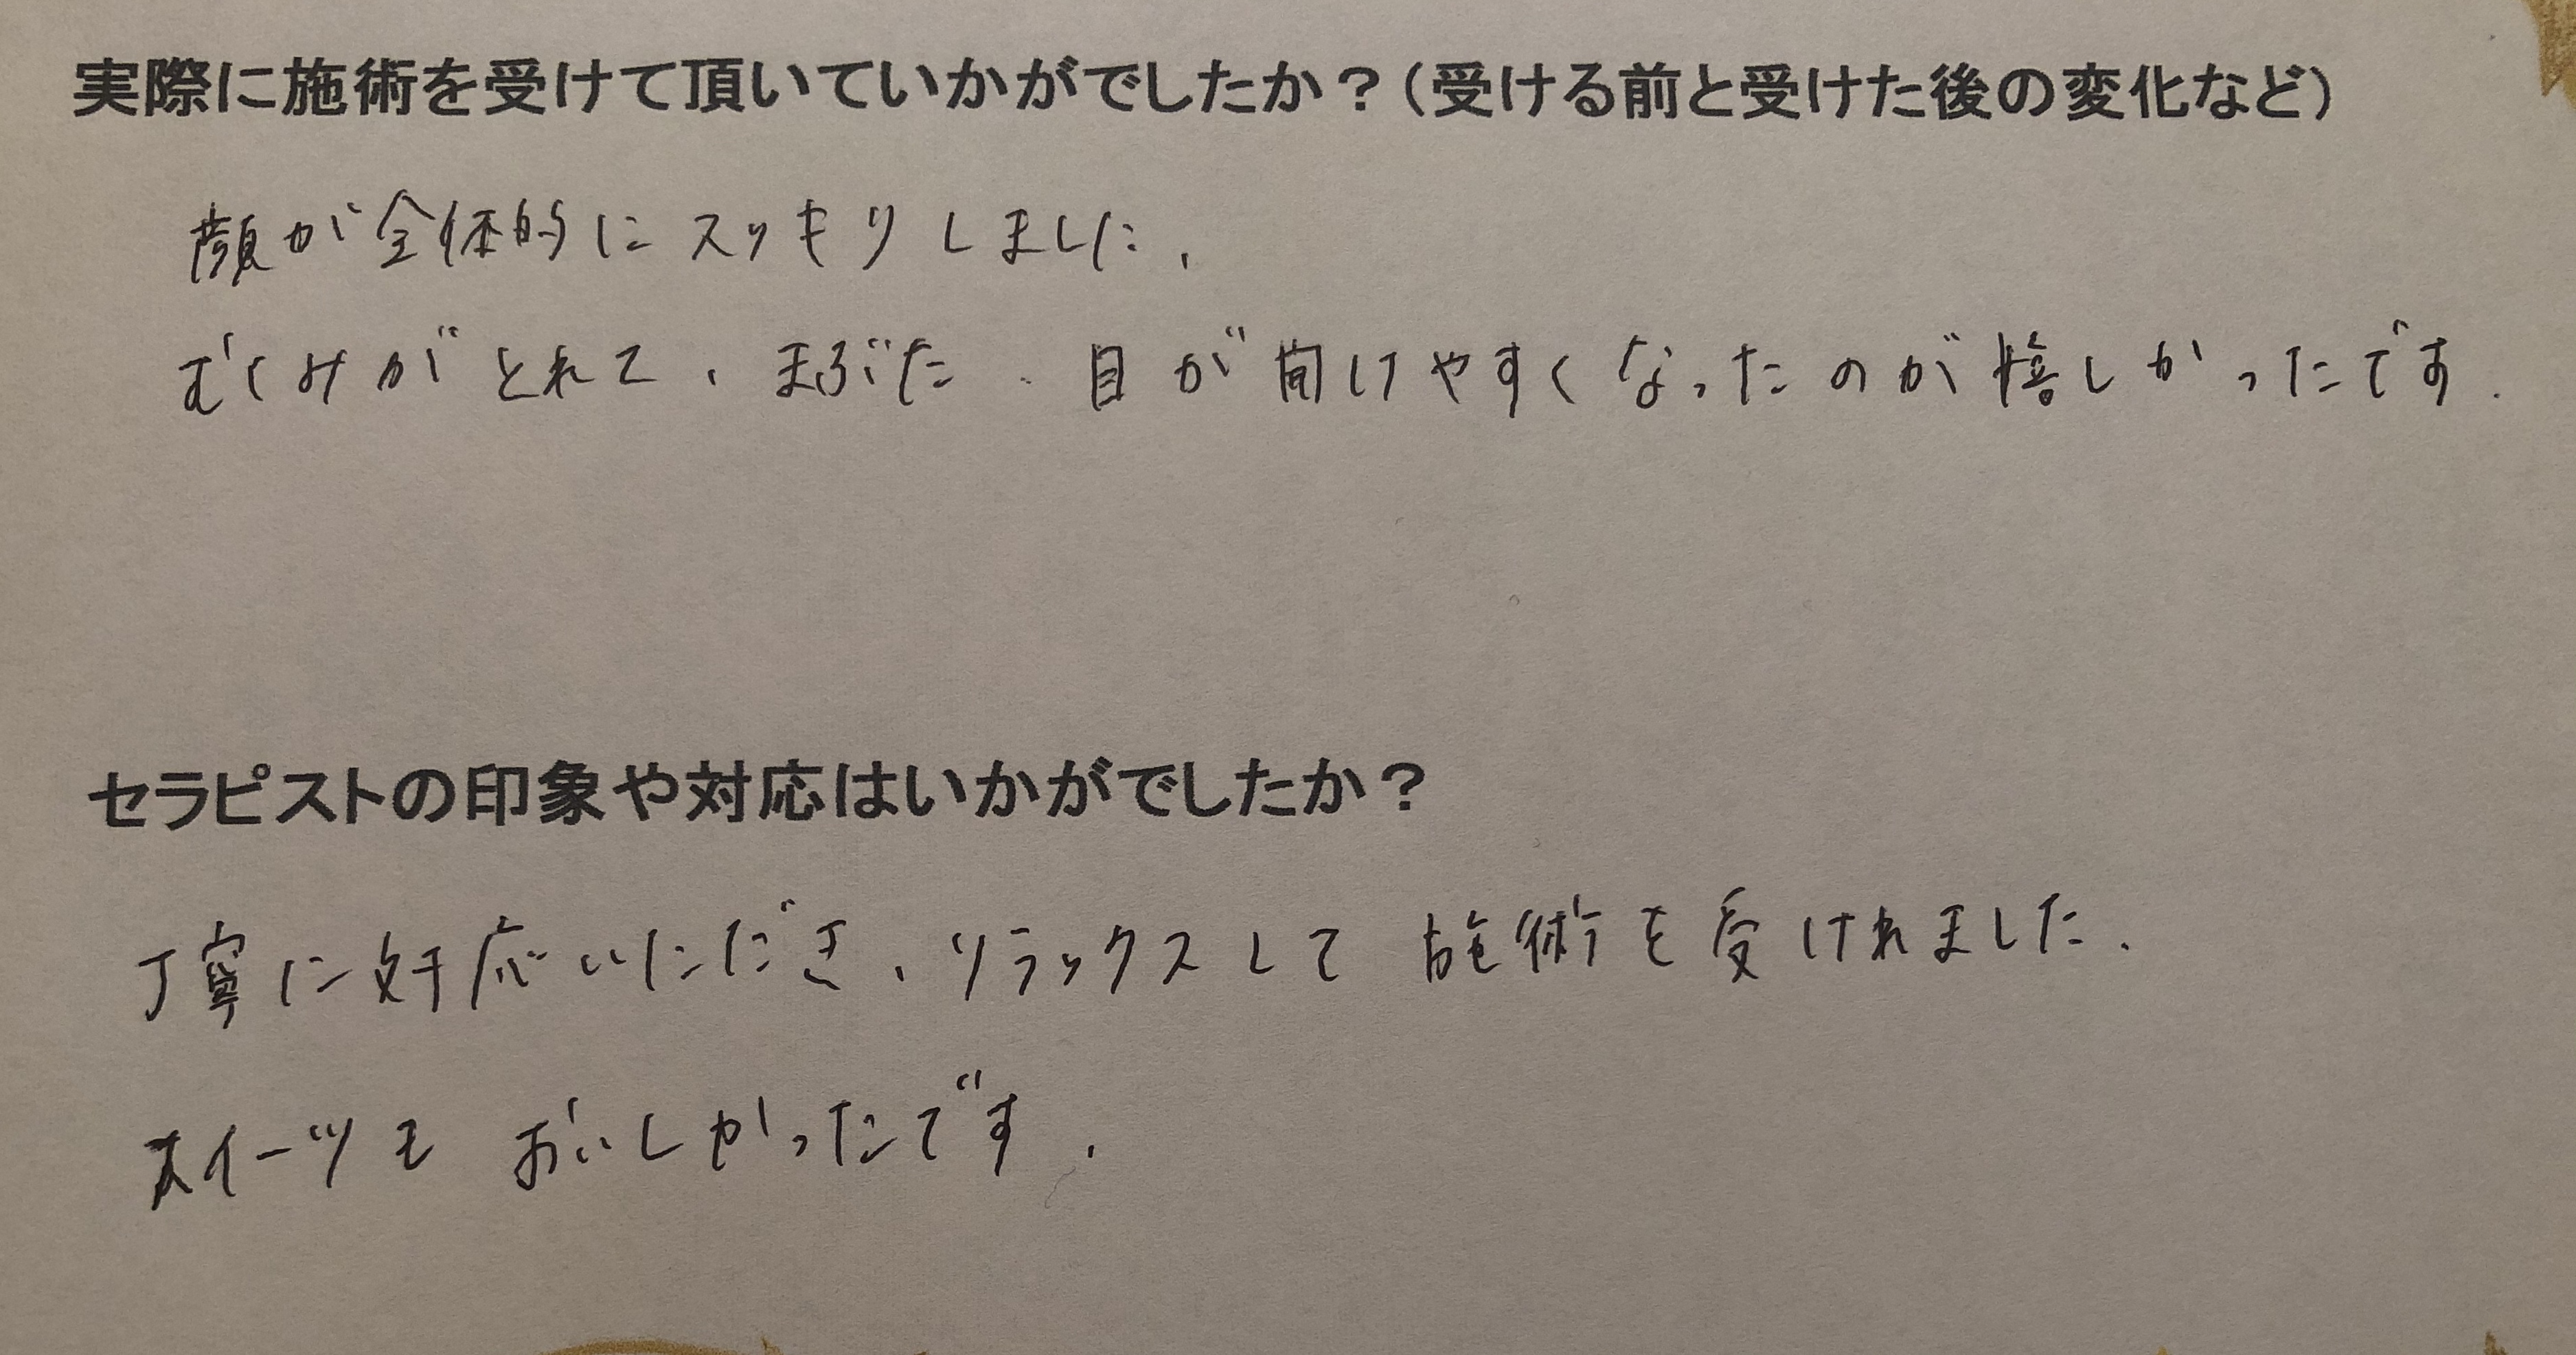 実際に施術を受けて頂いていかがでしたか？（受ける前と受けた後の変化など）
顔が全体的にスッキリしました、
むくみがとれて、まぶた、目が開けやすくなったのが嬉しかったです.
セラピストの印象や対応はいかがでしたか？
丁寧に対応いただき、リラックスして施術を受けれました.
スイーツもおいしかったです.